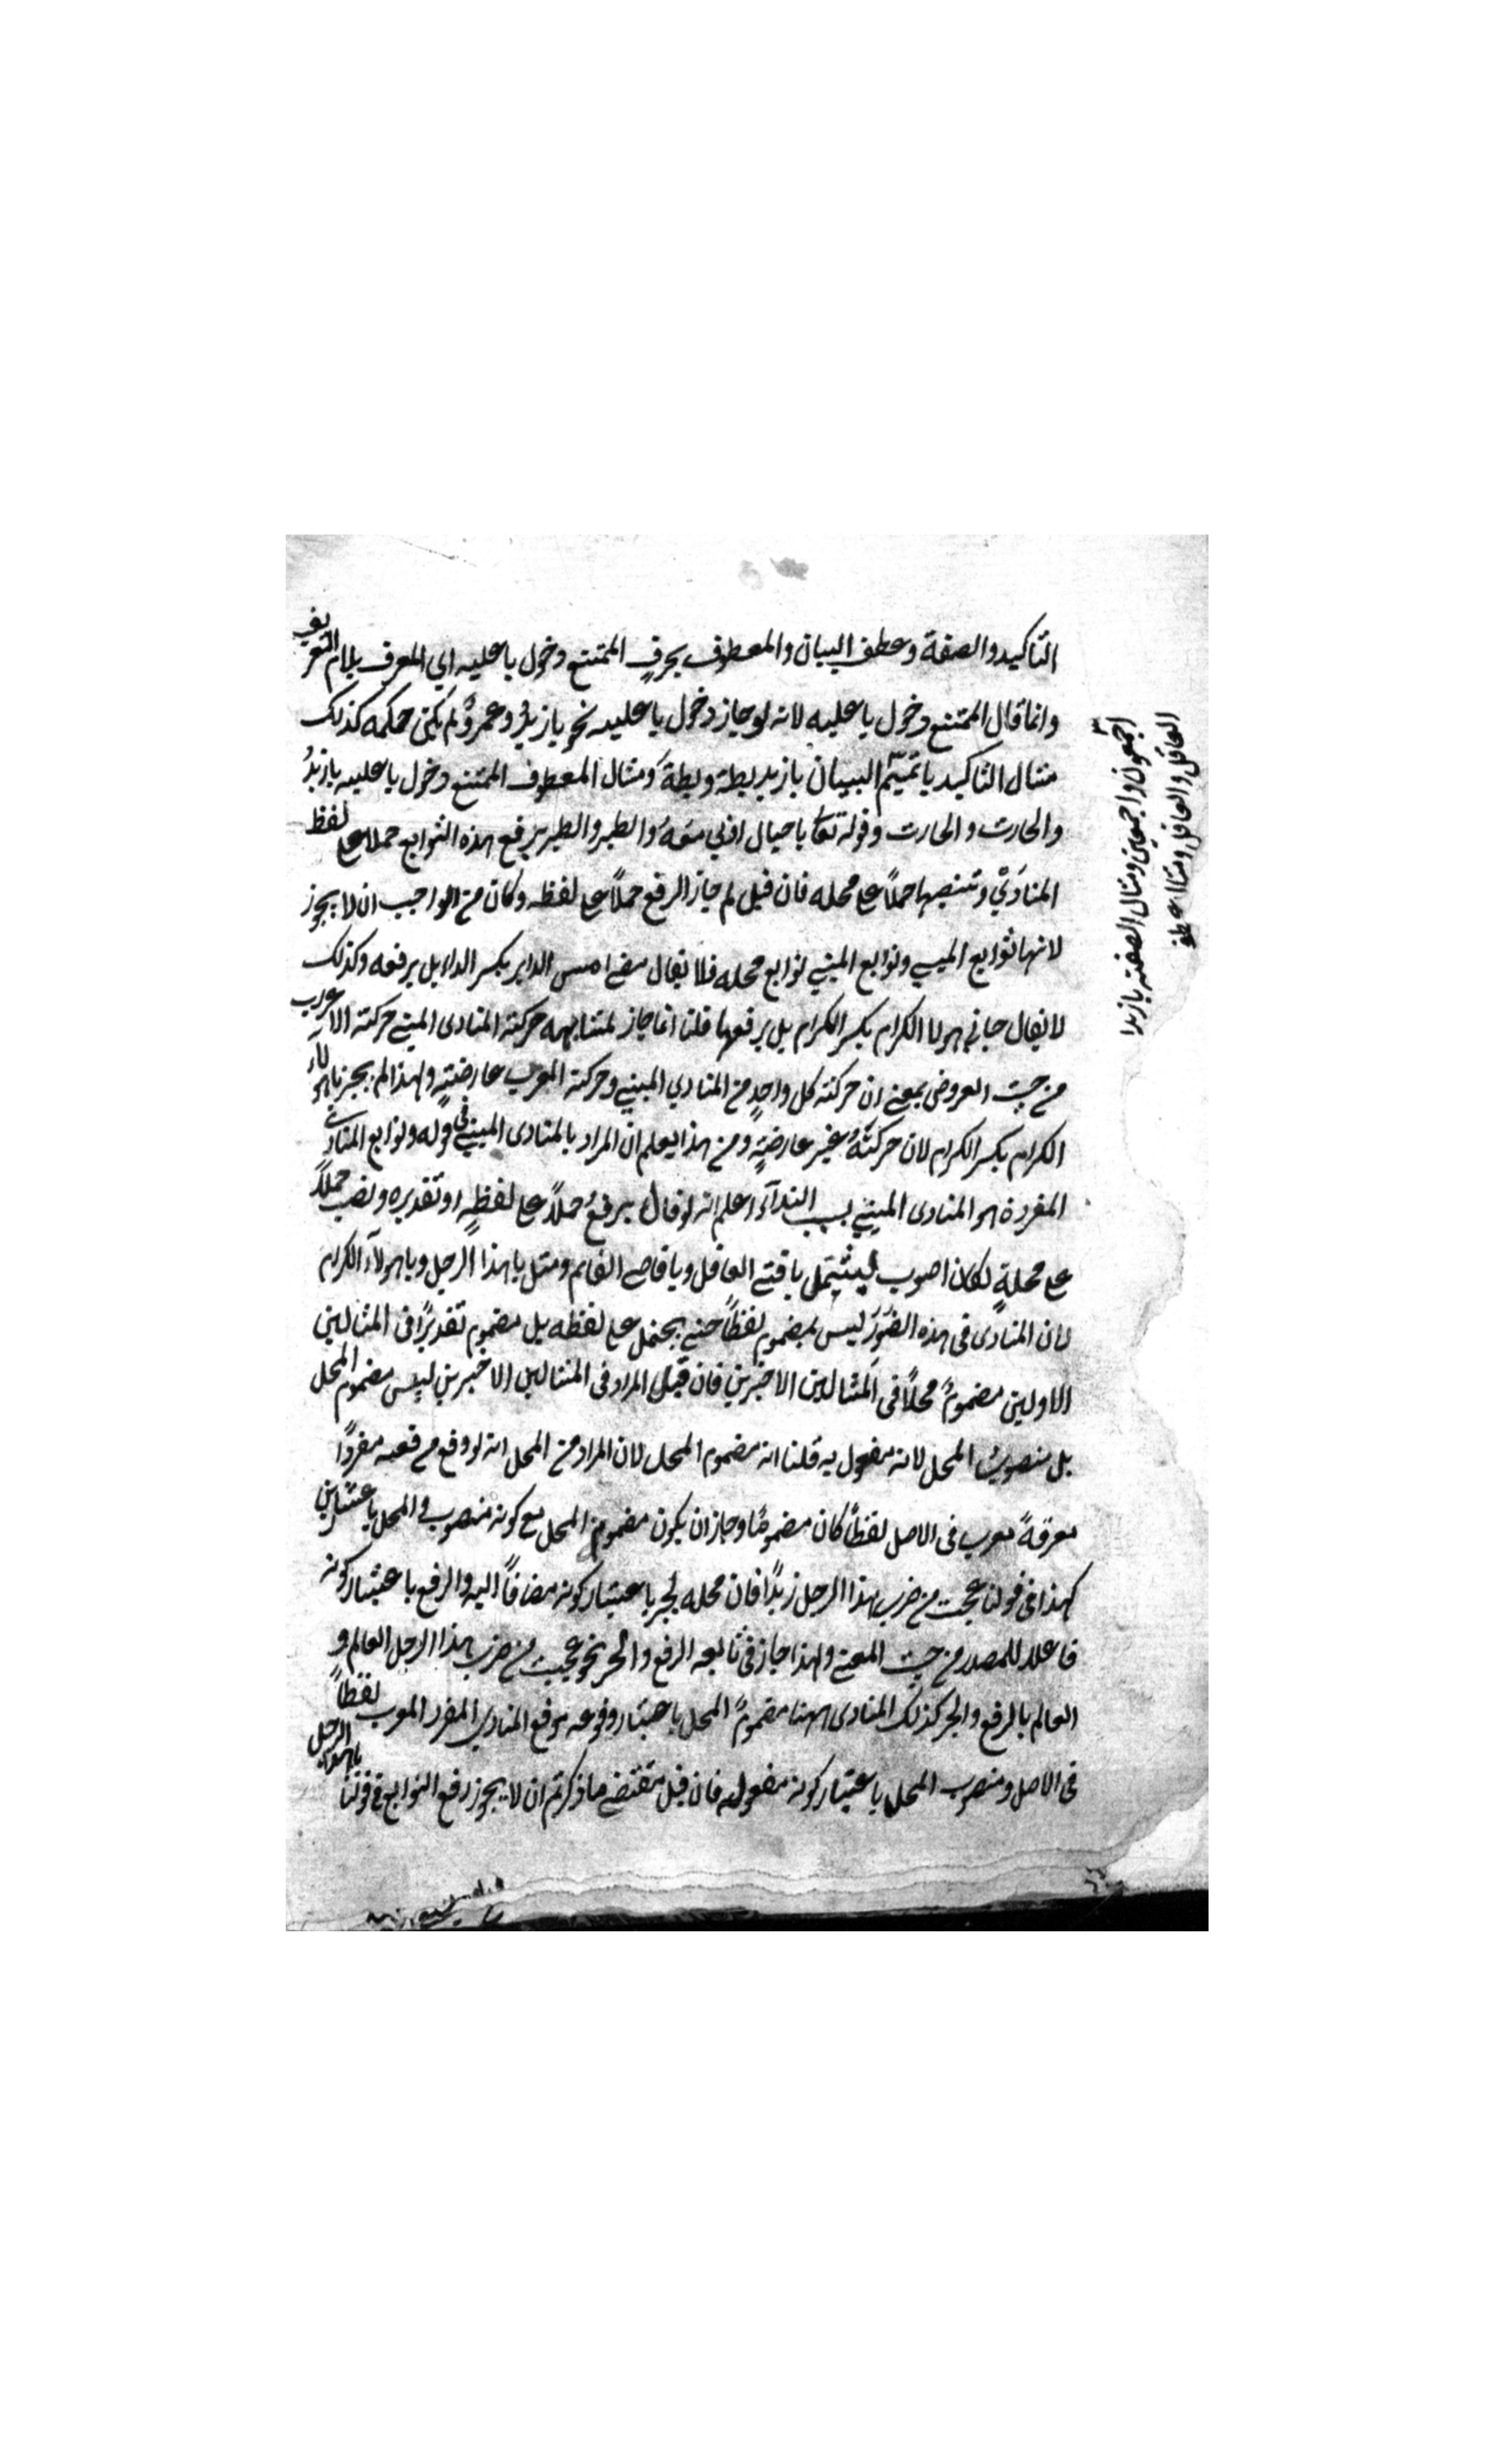 التاكيد والصفة وعطف البيان والمعطوف بحرفٍ الممتنع دخول يا عليه اي المعرف بلام التعريف
وانما قال الممتنع دخول يا عليه لانه لو جاز دخول يا عليه نحو يا زيدُ وعمروُ لم يكن حكمه كذلك
مثال التاكيد يا تميم البيان يا زيد بطة وبطةً ومثال المعطوف الممتنع دخول يا عليه يا زيدُ
والحارث والحارث وقوله تعا يا جبال اوبي معه والطير والطير يرفع هذه التوابع حملا على لفظ
المنادَيْ وتنصبها حملاً على محله فان قيل لم جاز الرفع حملاً على لفظه وكان من الواجب ان لا يجوز
لانها توابع المبني وتوابع المبني توابع محله فلا يقال مضى امس الدابر بكسر الدال بل برفعه وكذلك
لا يقال جاني هولا الكرام بكسر الكرام بل برفعها قلنا انما جاز لمشابهه حركة المنادى المبني حركة الاعراب
من حيث العروض بمعنى ان حركة كل واحدٍ من المنادي المبني وحركة المعرب عارضيةٍ ولهذا لم يجز يا هولاء
الكرام بكسر الكرام لان حركتهُ غير عارضيةٍ ومن هذا يعلم ان المراد بالمنادى المبني في قوله وتوابع المنادى
المفردة هو المنادى المبني بسبب النداء اعلم انه لو قال يرفعُ حملاً على لفظهِ او تقديره ونصب حملاً
على محلهٍ لكان اصوب ليشتمل يا فتى العاقل ويا قاضي القايم ومثل يا هذا الرجل ويا هولآء الكرام
لان المنادى في هذه الصُوَرَ ليس بمضموم لفظاً حتى يحتمل على لفظه بل مضموم تقديرًا في المثالين
الاولين مضمومٌ محلاً في المثالين الاخرين فان قيل المراد في المثالين الاخيرين ليس مضموم المحل
بل منصوبُ المحل لانه مفعول به قلنا انه مضموم المحل لان المراد من المحل انه لو وقع موقعه مفردًا
معرفةً معرب في الاصل لفظاً كان مضمومًا وجاز ان يكون مضموم المحل مع كونه منصوب المحل باعتبارين
كهذا في قولنا عجبت من ضرب هذا الرجل زيدًا فان محله لجر باعتبار كونه مضافاً اليه والرفع باعتبار كونه
فاعلا للمصدر من حيث المعنى ولهذا جاز في تابعه الرفع والجر نحو عجبت من ضرب هذا الرجل العالم و
العالم بالرفع والجر كذلك المنادى ههنا مضمومً المحل باعتبار وقوعه موقع المنادي المفرد المعرب لفظاً
في الاصل ومنصوب المحل باعتبار كونه مفعول به فان قيل مقتضى ما ذكرتم ان لا يجوز رفع التوابع في قولنا يا هذا الرجل
اجمعون واجمعين ومثال الصفة يا زيد
العاقل والعاقل ومثال عطف